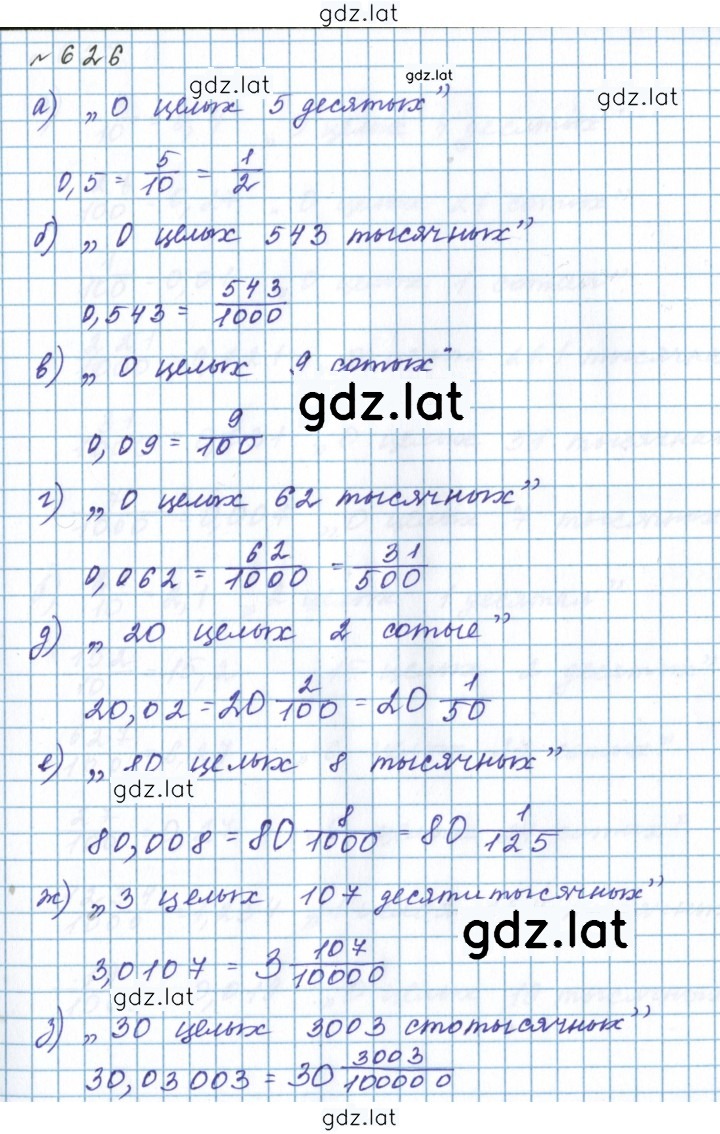 gdz.lat
№ 626
gdz.lat
gdz.lat
gdz.lat
а) „0 целых 5 десятых”
0,5 = 5/10 = 1/2
б) „0 целых 543 тысячных”
0,543 = 543/1000
в) „0 целых 9 сотых”
gdz.lat
0,09 = 9/100
г) „0 целых 62 тысячных”
0,062 = 62/1000 = 31/500
д) „20 целых 2 сотые”
20,02 = 20 2/100 = 20 1/50
е) „80 целых 8 тысячных”
gdz.lat
80,008 = 80 8/1000 = 80 1/125
ж) „3 целых 107 десятитысячных”
gdz.lat
3,0107 = 3 107/10000
gdz.lat
з) „30 целых 3003 стотысячных”
30,03003 = 30 3003/100000
gdz.lat